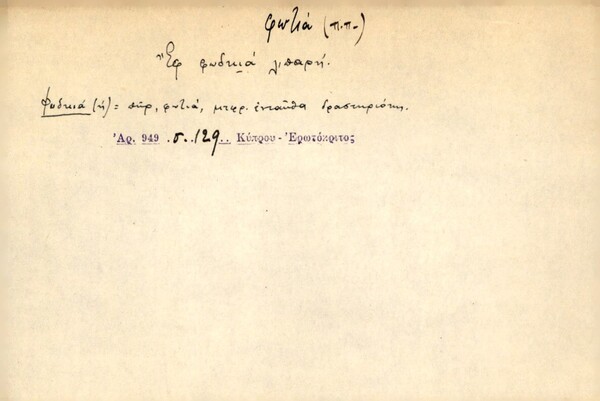 φωτιά (π.π.)
Ἒφ φωδκιά λιπαρή.
Φωδκιά (ἡ) = πῦρ, φωτιά, μτφρ. ἐνταῦθα δραστηριότης.
Ἀρ. 949 .σ..129.. Κύπρου - Ἐρωτόκριτος